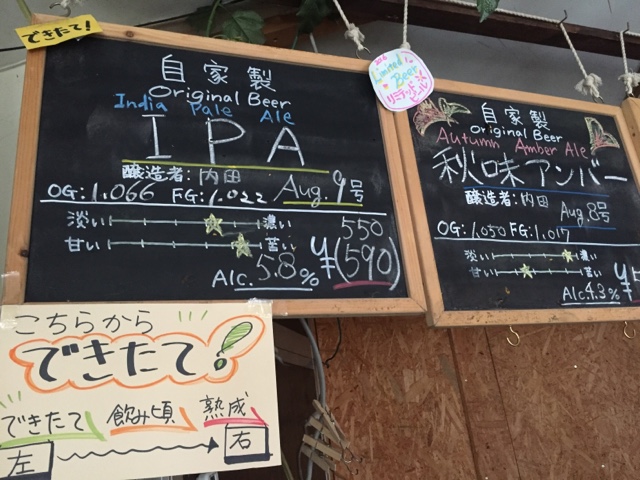 できたて!
自家製
Original Beer
India Pale Ale
IPA
醸造者:内田
OG:1.066 FG:1.022 Aug. 9号
淡い 濃い
甘い 苦い
550
¥(590)
Alc.5.8%
Limited
Beer
リミテッド
ビール
自家製
Original Beer
Autumn Amber Ale
秋味アンバー
醸造者:内田
Aug 8号
OG:1.050 FG:1.017
淡い 濃い
甘い 苦い
¥
Alc.4.3%
こちらから
できたて!
できたて 飲み頃 熟成
左 右